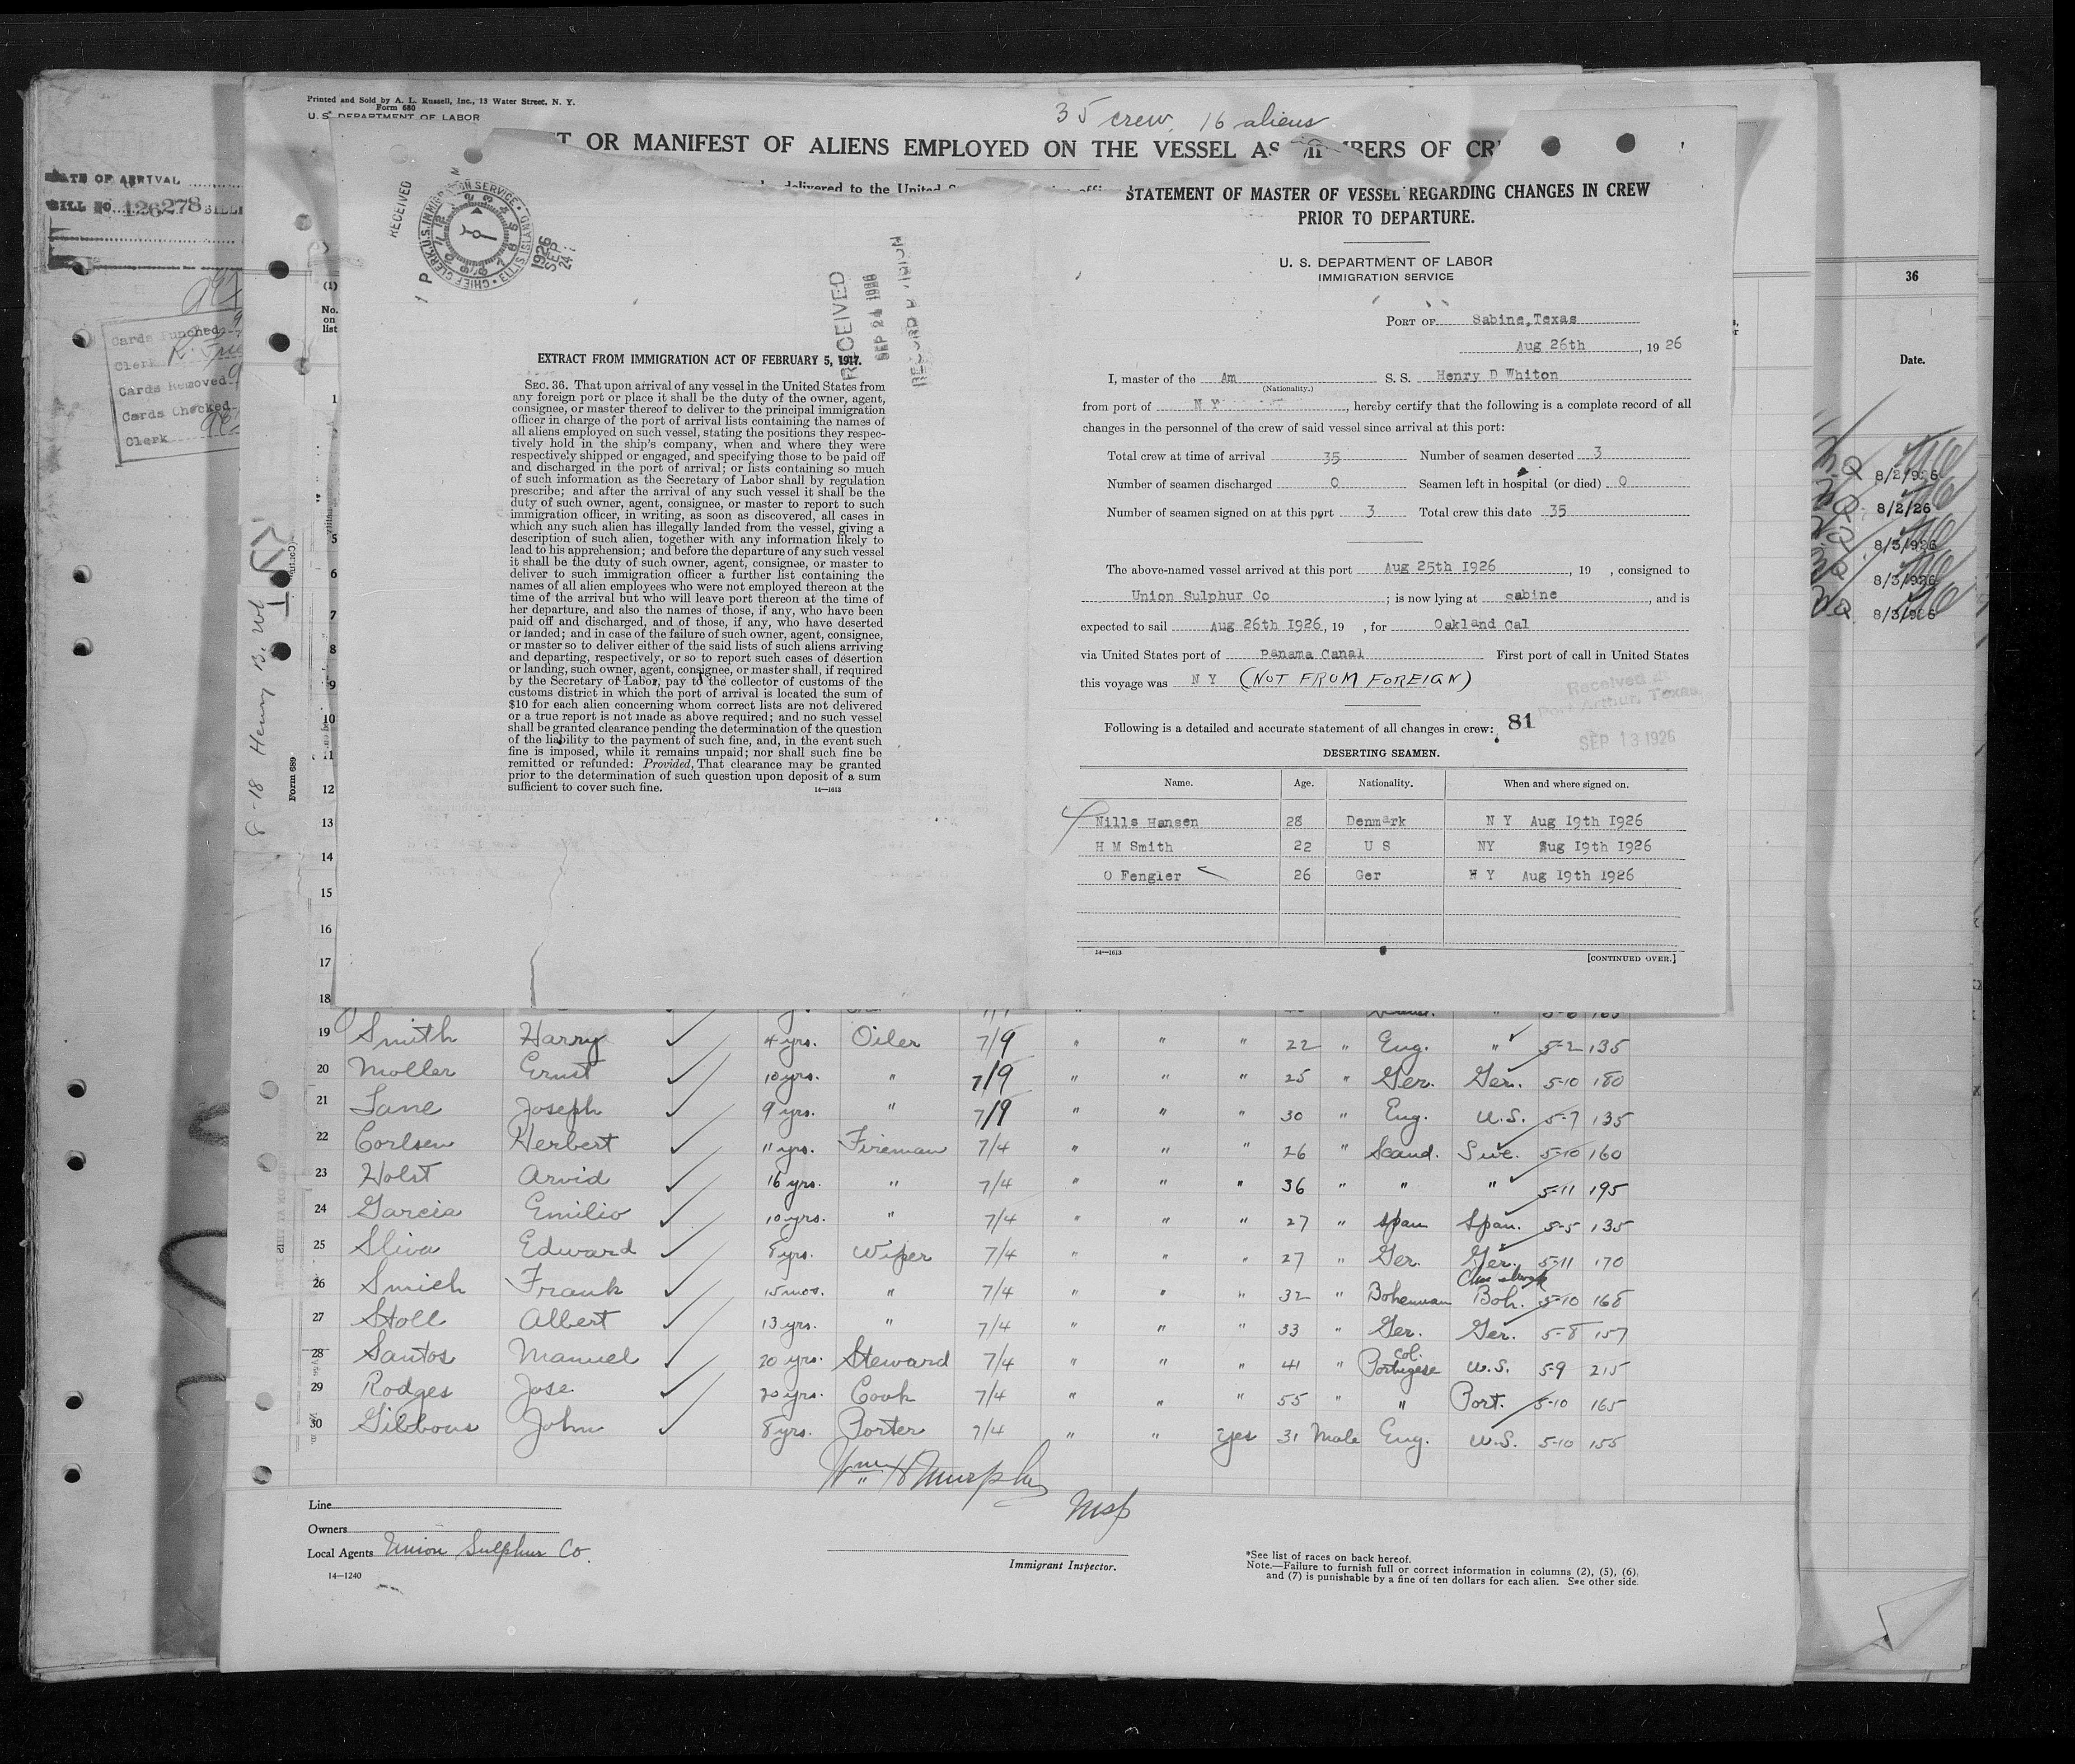 Printed and Sold by A. L. Russell, Inc., 13 Water Street, N. Y.
Form 680
U. S. DEPARTMENT OF LABOR
35 crew, 16 aliens
T OR MANIFEST OF ALIENS EMPLOYED ON THE VESSEL AS MEMBERS OF CR
delivered to the United S
DATE OF ARRIVAL
BILL NO. 126278
Cards Punched
Clerk
Cards Removed
Cards Checked
Clerk
8-18 Henry D. Wh
Form 689
(1)
No. on list
RECEIVED
CHIEF CLERK, U.S. IMMIGRATION SERVICE • ELLIS ISLAND
1926 SEP 24
RECEIVED
SEP 24 1926
RECORD DIVISION
EXTRACT FROM IMMIGRATION ACT OF FEBRUARY 5, 1917.
SEC. 36. That upon arrival of any vessel in the United States from
any foreign port or place it shall be the duty of the owner, agent,
consignee, or master thereof to deliver to the principal immigration
officer in charge of the port of arrival lists containing the names of
all aliens employed on such vessel, stating the positions they respec-
tively hold in the ship's company, when and where they were
respectively shipped or engaged, and specifying those to be paid off
and discharged in the port of arrival; or lists containing so much
of such information as the Secretary of Labor shall by regulation
prescribe; and after the arrival of any such vessel it shall be the
duty of such owner, agent, consignee, or master to report to such
immigration officer, in writing, as soon as discovered, all cases in
which any such alien has illegally landed from the vessel, giving a
description of such alien, together with any information likely to
lead to his apprehension; and before the departure of any such vessel
it shall be the duty of such owner, agent, consignee, or master to
deliver to such immigration officer a further list containing the
names of all alien employees who were not employed thereon at the
time of the arrival but who will leave port thereon at the time of
her departure, and also the names of those, if any, who have been
paid off and discharged, and of those, if any, who have deserted
or landed; and in case of the failure of such owner, agent, consignee,
or master so to deliver either of the said lists of such aliens arriving
and departing, respectively, or so to report such cases of desertion
or landing, such owner, agent, consignee, or master shall, if required
by the Secretary of Labor, pay to the collector of customs of the
customs district in which the port of arrival is located the sum of
$10 for each alien concerning whom correct lists are not delivered
or a true report is not made as above required; and no such vessel
shall be granted clearance pending the determination of the question
of the liability to the payment of such fine, and, in the event such
fine is imposed, while it remains unpaid; nor shall such fine be
remitted or refunded: Provided, That clearance may be granted
prior to the determination of such question upon deposit of a sum
sufficient to cover such fine.
14—1613
STATEMENT OF MASTER OF VESSEL REGARDING CHANGES IN CREW
PRIOR TO DEPARTURE.
U. S. DEPARTMENT OF LABOR
IMMIGRATION SERVICE
PORT OF Sabine,Texas
Aug 26th , 19 26
I, master of the Am S. S. Henry D Whiton
(Nationality.)
from port of N Y , hereby certify that the following is a complete record of all
changes in the personnel of the crew of said vessel since arrival at this port:
Total crew at time of arrival 35 Number of seamen deserted 3
Number of seamen discharged 0 Seamen left in hospital (or died) 0
Number of seamen signed on at this port 3 Total crew this date 35
The above-named vessel arrived at this port Aug 25th 1926 , 19 , consigned to
Union Sulphur Co ; is now lying at sabine , and is
expected to sail Aug 26th 1926 , 19 , for Oakland Cal
via United States port of Panama Canal First port of call in United States
this voyage was N Y (NOT FROM FOREIGN)
Received at
Port Arthur, Texas
SEP 13 1926
Following is a detailed and accurate statement of all changes in crew: 81
DESERTING SEAMEN.
Name. Age. Nationality. When and where signed on.
Nills Hansen 28 Denmark N Y Aug 19th 1926
H M Smith 22 U S NY Aug 19th 1926
O Fengler 26 Ger N Y Aug 19th 1926
14—1613
[CONTINUED OVER.]
36
Date.
8/2/926
8/2/26
8/3/926
8/3/926
8/3/926
1
5
6
7
8
9
10
11
12
13
14
15
16
17
18
19 Smith Harry 4 yrs. Oiler 7/9 " " " 22 " Eng. " 5-2 135
20 Moller Ernst 10 yrs. " 7/9 " " " 25 " Ger. Ger. 5-10 180
21 Lane Joseph 9 yrs. " 7/9 " " " 30 " Eng. U.S. 5-7 135
22 Corlsen Herbert 11 yrs. Fireman 7/4 " " " 26 " Scand. Swe. 5-10 160
23 Holst Arvid 16 yrs. " 7/4 " " " 36 " " " 5-11 195
24 Garcia Emilio 10 yrs. " 7/4 " " " 27 " Span Span. 5-5 135
25 Sliva Edward 8 yrs. Wiper 7/4 " " " 27 " Ger. Ger. 5-11 170
26 Smich Frank 15 mos. " 7/4 " " " 32 " Bohemian Boh. 5-10 168
27 Stoll Albert 13 yrs. " 7/4 " " " 33 " Ger. Ger. 5-8 157
28 Santos Manuel 20 yrs. Steward 7/4 " " " 41 " col. Portugese U.S. 5-9 215
29 Rodges Jose 20 yrs. Cook 7/4 " " " 55 " " Port. 5-10 165
30 Gibbons John 8 yrs. Porter 7/4 " " Yes 31 Male Eng. U.S. 5-10 155
Wm H Murphy
Line
Owners
Local Agents Union Sulphur Co.
14—1240
Immigrant Inspector.
*See list of races on back hereof.
Note.—Failure to furnish full or correct information in columns (2), (5), (6),
and (7) is punishable by a fine of ten dollars for each alien. See other side.